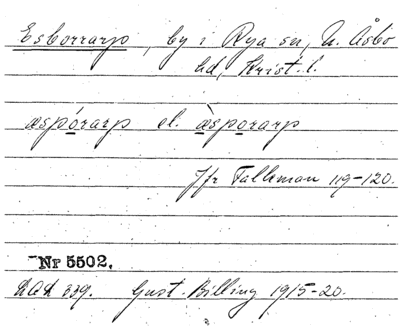 Esborrarp, by i Rya sn, N. Åsbo
hd, Krist. l.
æspórarp el. æ̀sporarp
Jfr Falkman 119-120.
Nr 5502.
LAL 339. Gust. Billing 1915-20.